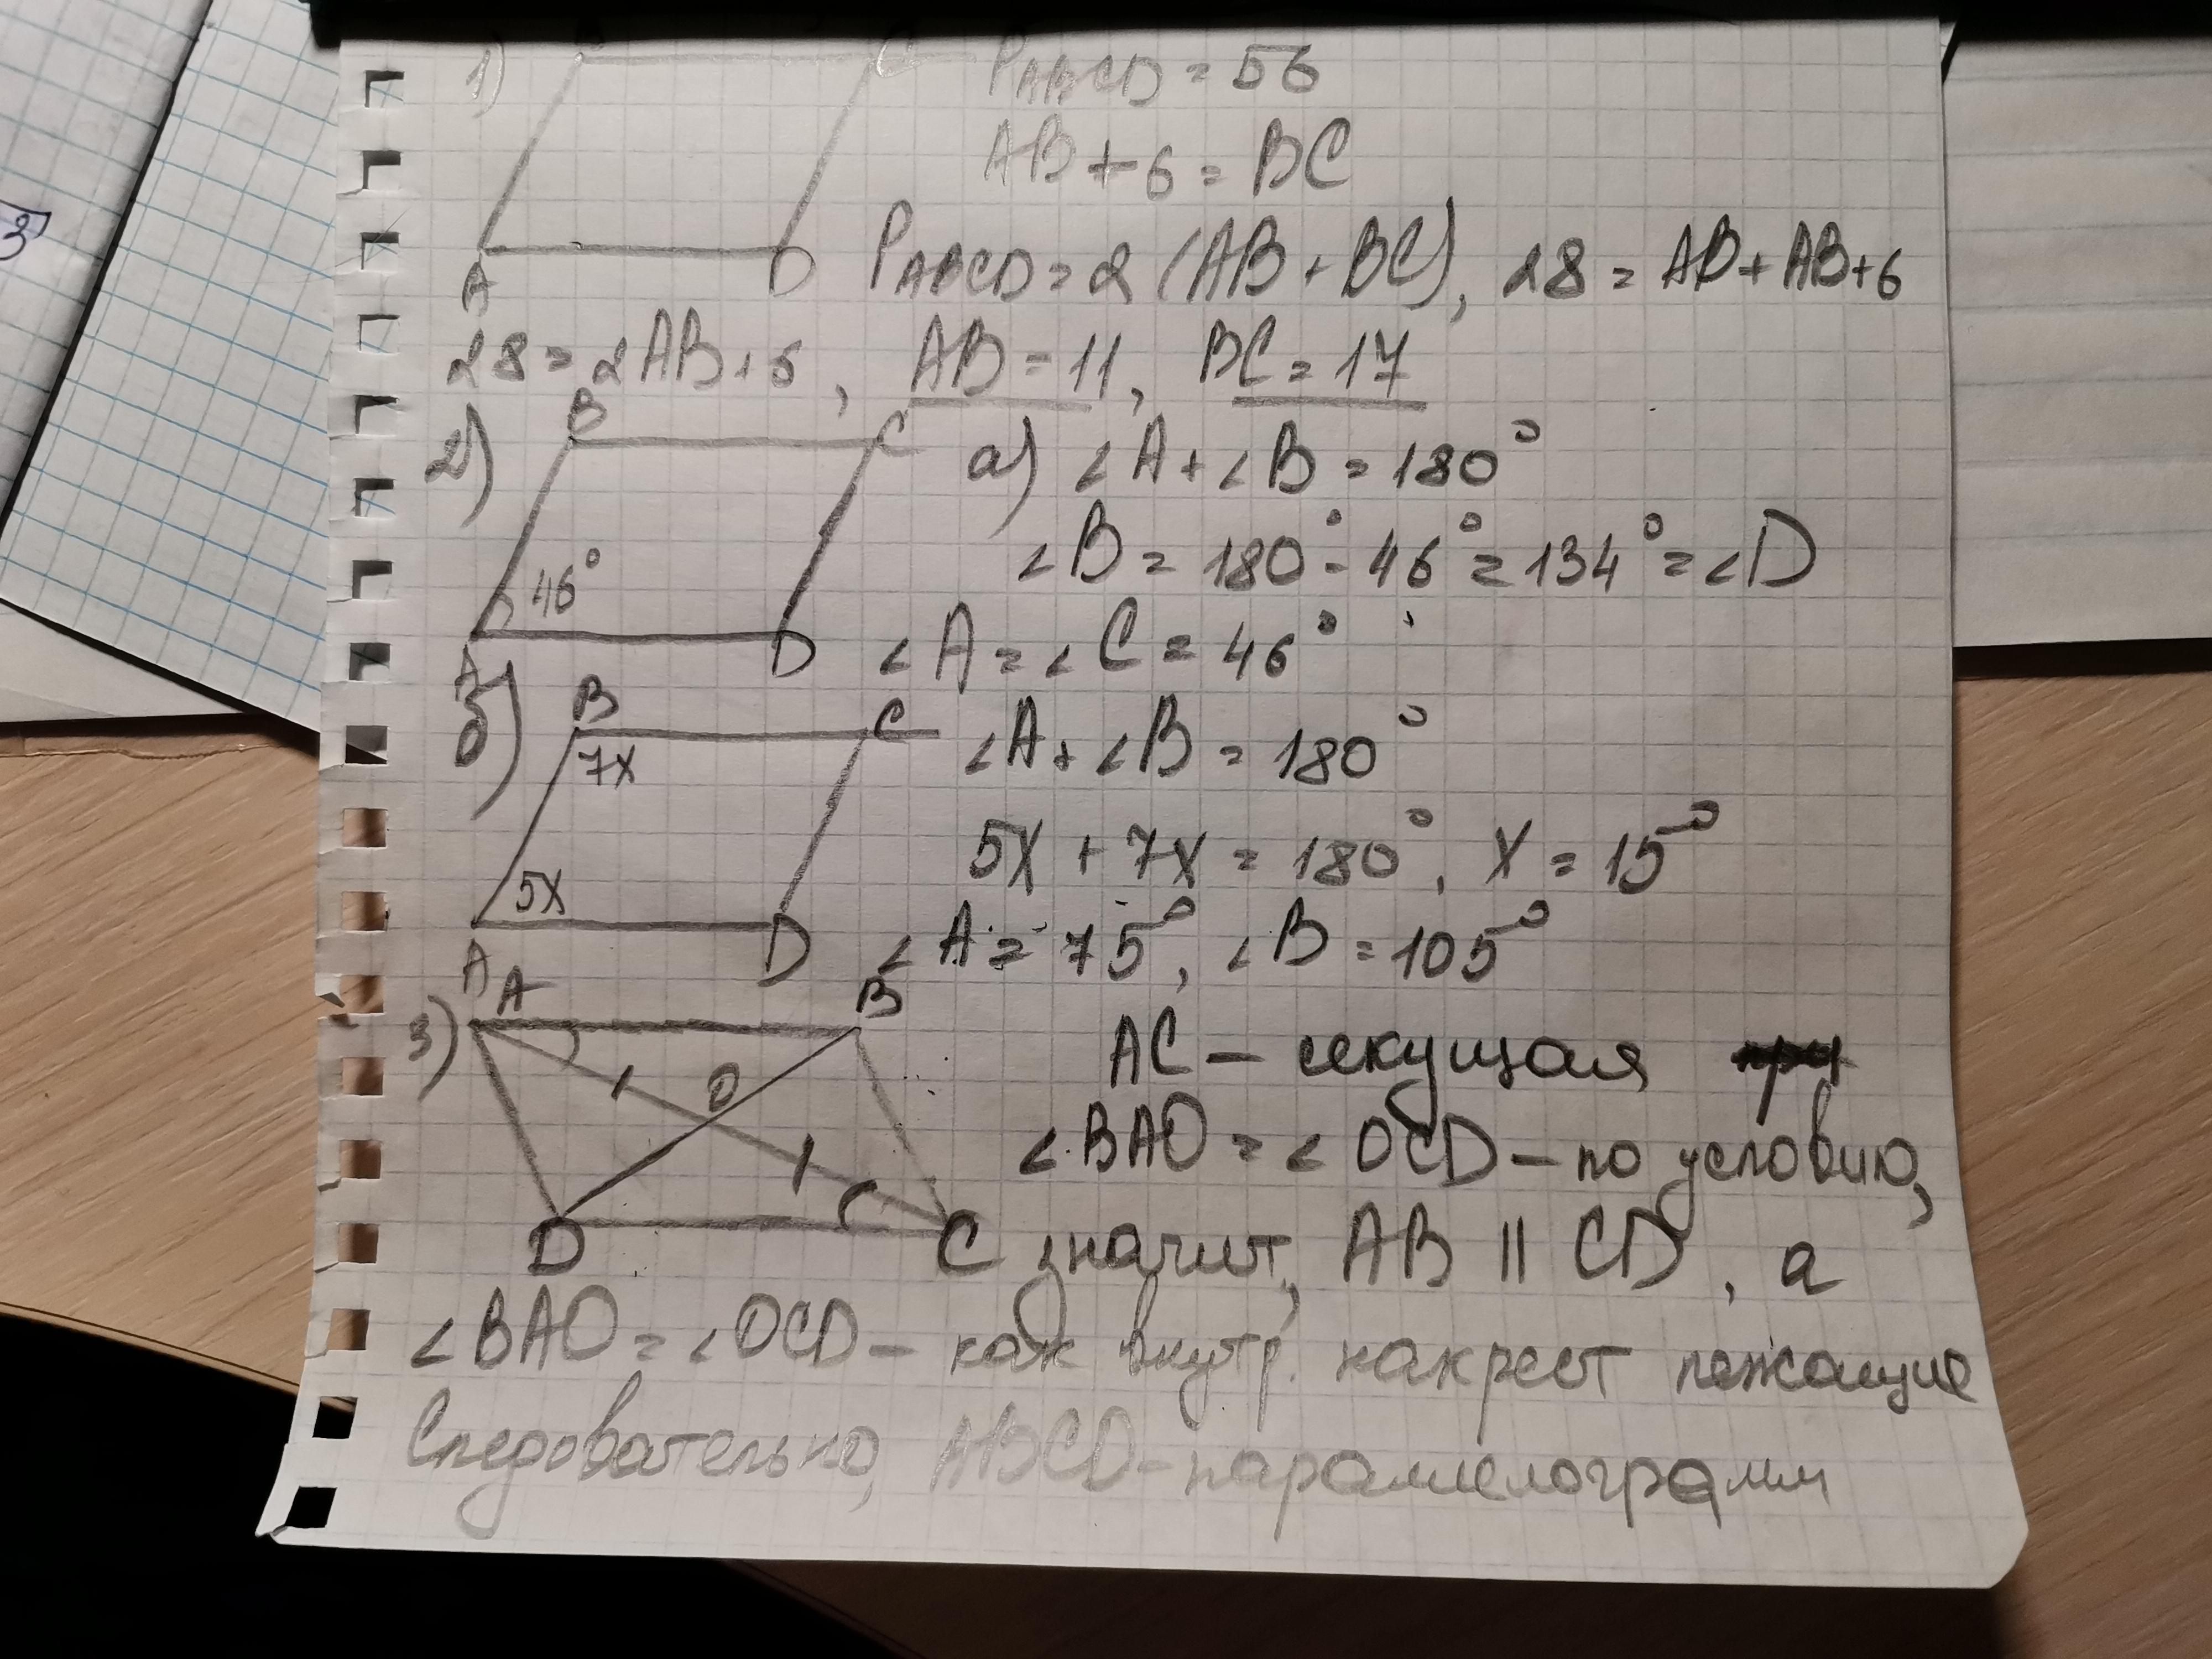 1) B C P ABCD = 56
AB + 6 = BC
A D P ABCD = 2 (AB + BC), 28 = AB + AB + 6
28 = 2AB + 6, AB = 11, BC = 17
2) B C а) ∠A + ∠B = 180°
46° ∠B = 180° - 46° = 134° = ∠D
A D ∠A = ∠C = 46°
б) B C ∠A + ∠B = 180°
7x
5x 5x + 7x = 180°, x = 15°
A D ∠A = 75°, ∠B = 105°
3) A B AC – секущая
O ∠BAO = ∠OCD – по условию,
D C значит, AB || CD, а
∠BAO = ∠OCD – как внутр. накрест лежащие
Следовательно, ABCD – параллелограмм
3